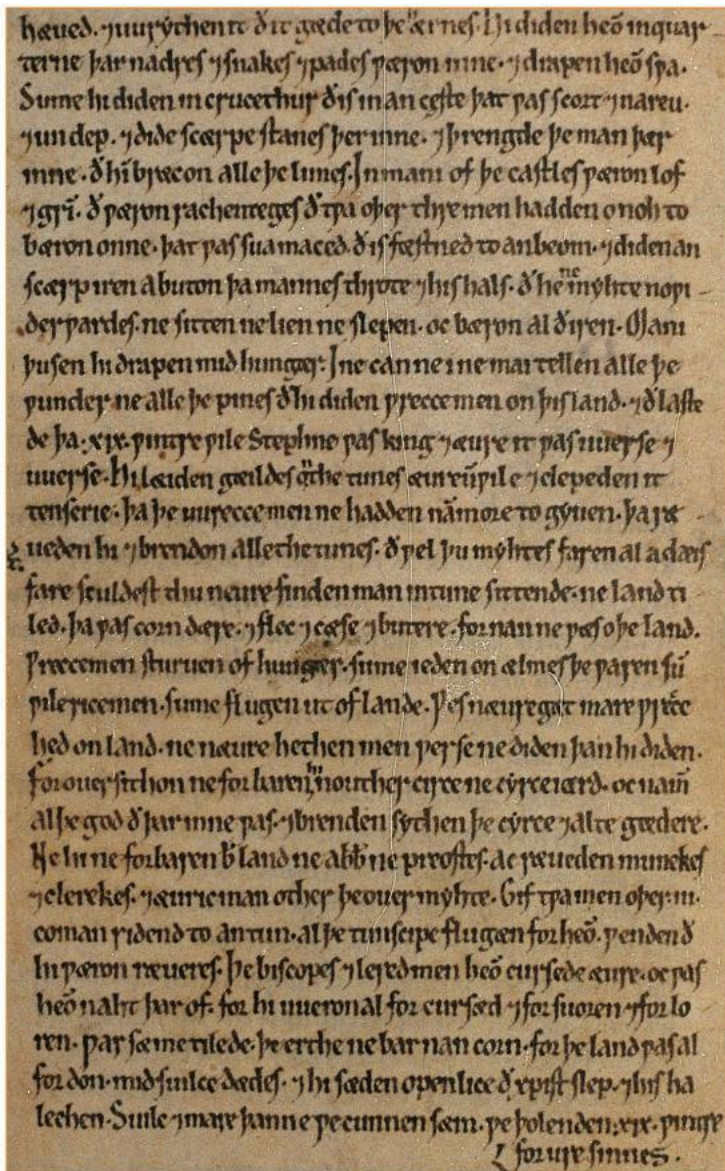 hæued. ⁊ uurythen it ꝥ it gæde to þe hærnes. Hi diden heō in quar-
terne þar nadres ⁊ snakes ⁊ pades ƿæron inne. ⁊ drapen heō sƿa.
Sume hi diden in crucethur ꝥ is in an ceste þat ƿas scort ⁊ nareu.
⁊ undep. ⁊ dide scærpe stanes þer inne. ⁊ þrengde þe man þær
inne. ꝥ hī bræcon alle þe limes. In mani of þe castles ƿæron lof
⁊ grī. ꝥ ƿæron rachenteges ꝥ tƿa oþer thre men hadden onoh to
bæron onne. þat ƿas sua maced. ꝥ is fæstned to an beom. ⁊ diden an
scærp iren abuton þa mannes throte ⁊ his hals. ꝥ he ne myhte noƿi-
derƿardes. ne sitten ne lien ne slepen. oc bæron al ꝥ iren. Mani
þusen hi drapen mid hunger. I ne can ne i ne mai tellen alle þe
ƿunder ne alle þe pines ꝥ hi diden ƿrecce men on þis land. ⁊ ꝥ laste-
de þa .xix. ƿintre ƿile Stephne ƿas king ⁊ æure it ƿas uuerse ⁊
uuerse. Hi læiden gæildes on the tunes æureū ƿile ⁊ clepeden it
tenserie. þa þe uurecce men ne hadden nāmore to gyuen. þa ræ-
ueden hi ⁊ brendon alle the tunes. ꝥ ƿel þu myhtes faren al a dæis
fare sculdest thu neure finden man in tune sittende. ne land ti-
led. þa ƿas corn dære. ⁊ flec ⁊ cæse ⁊ butere. for nan ne ƿæs o þe land.
Ƿrecce men sturuen of hunger. sume ieden on ælmes þe ƿaren sū
ƿile rice men. sume flugen ut of lande. Ƿes næure gæt mare ƿrecce
hed on land. ne næure hethen men ƿerse ne diden þan hi diden.
For ouer sithon ne for baren hi nouther circe ne cyrceiærd. oc nam̄
al þe god ꝥ þar inne ƿas. ⁊ brenden sythen þe cyrce ⁊ al te gædere.
Ne hi ne forbaren b̄ land ne abb̄ ne preostes. ac ræueden munekes
⁊ clerekes. ⁊ æuric man other þe ouer myhte. Gif tƿa men oþer .iii.
coman ridend to an tun. al þe tunscipe flugæn for heō. ƿenden ꝥ
hi ƿæron ræueres. Þe biscopes ⁊ lered men heō cursede æure. oc ƿas
heō naht þar of. for hi uueron al for cursæd ⁊ for suoren ⁊ for lo-
ren. ƿar sæ me tilede. þe erthe ne bar nan corn. for þe land ƿas al
for don. mid suilce dædes. ⁊ hi sæden openlice ꝥ xp̄ist slep. ⁊ his ha-
lechen. Suilc ⁊ mare þanne ƿe cunnen sæin. ƿe þolenden .xix. ƿintre
for ure sinnes.